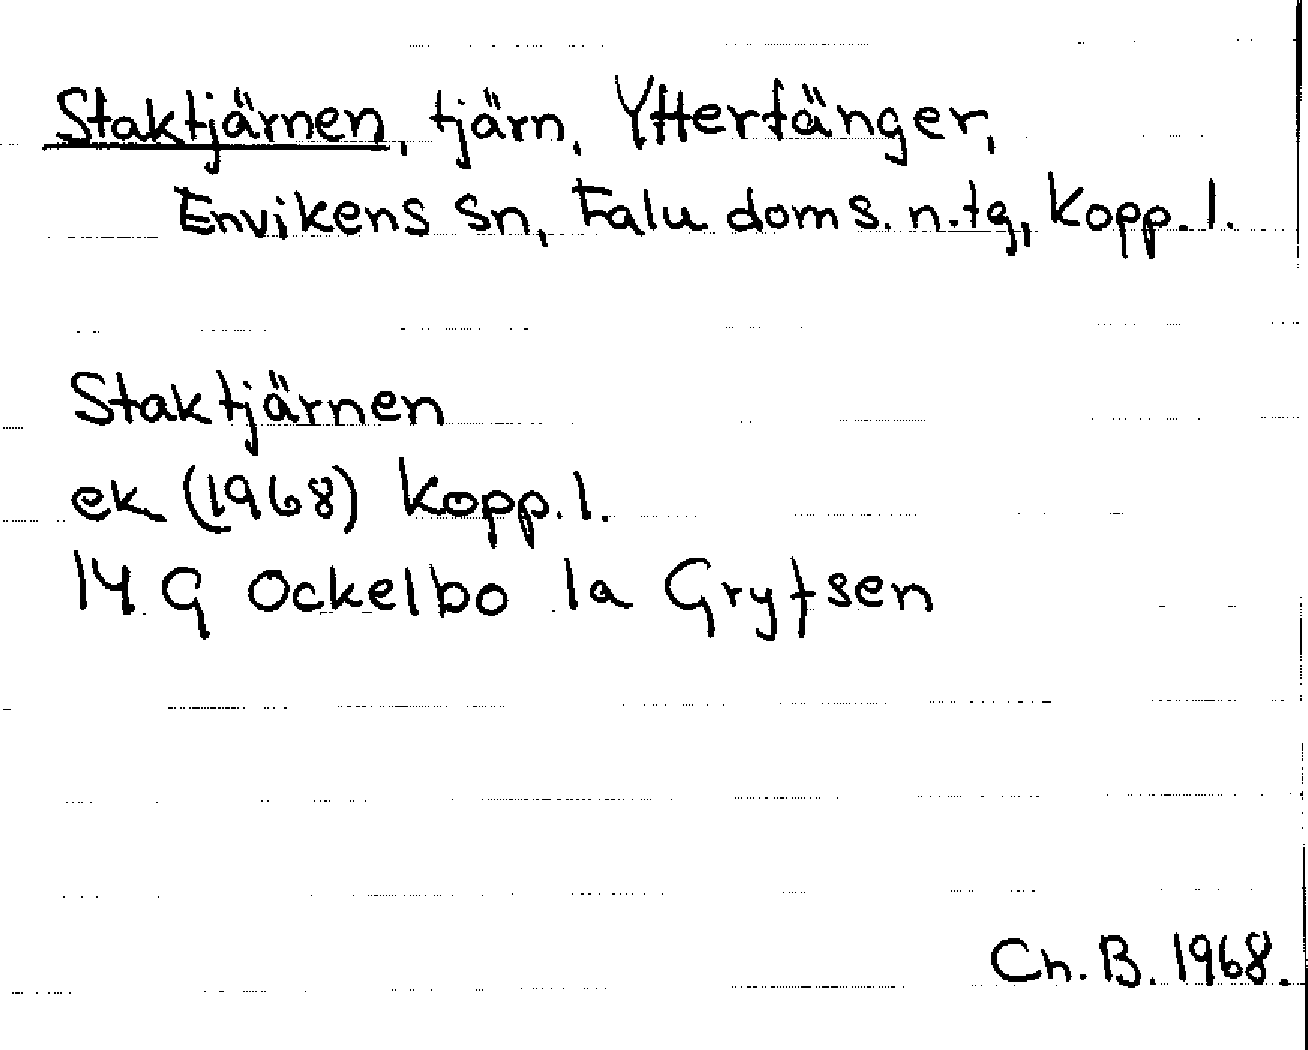 Staktjärnen, tjärn, Ytterfänger,
Envikens sn, Falu doms. n. tg, Kopp. l.
Staktjärnen
ek (1968) Kopp. l.
14 G Ockelbo 1a Gryfsen
Ch. B. 1968.